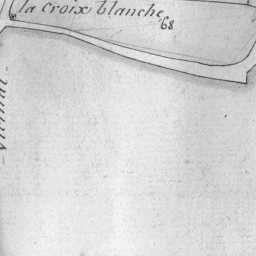 la croix blanche
68
Vicinal